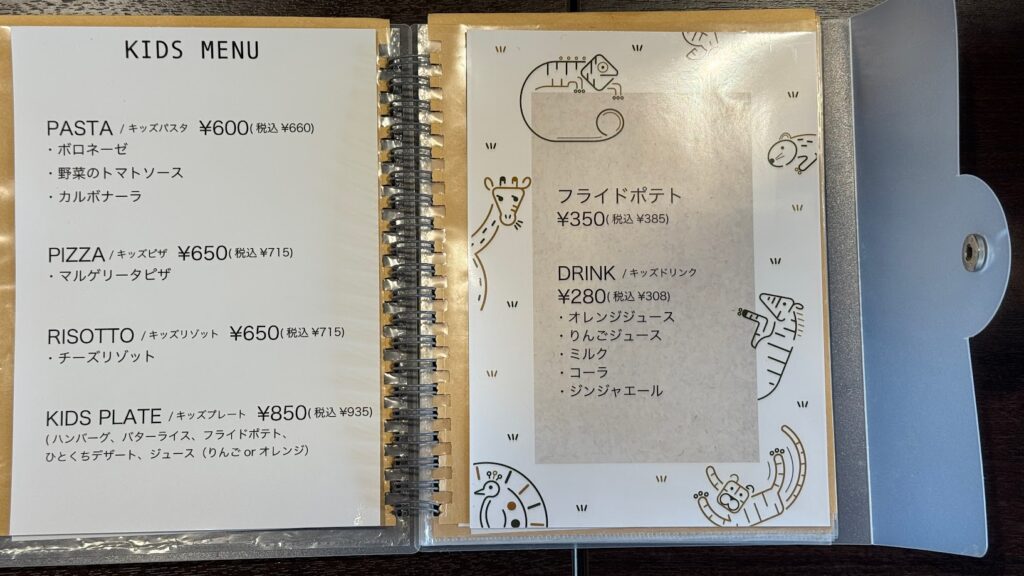 KIDS MENU
PASTA / キッズパスタ ¥600(税込 ¥660)
・ボロネーゼ
・野菜のトマトソース
・カルボナーラ
PIZZA / キッズピザ ¥650(税込 ¥715)
・マルゲリータピザ
RISOTTO / キッズリゾット ¥650(税込 ¥715)
・チーズリゾット
KIDS PLATE / キッズプレート ¥850(税込 ¥935)
(ハンバーグ、バターライス、フライドポテト、
ひとくちデザート、ジュース（りんご or オレンジ）
フライドポテト
¥350(税込 ¥385)
DRINK / キッズドリンク
¥280(税込 ¥308)
・オレンジジュース
・りんごジュース
・ミルク
・コーラ
・ジンジャエール